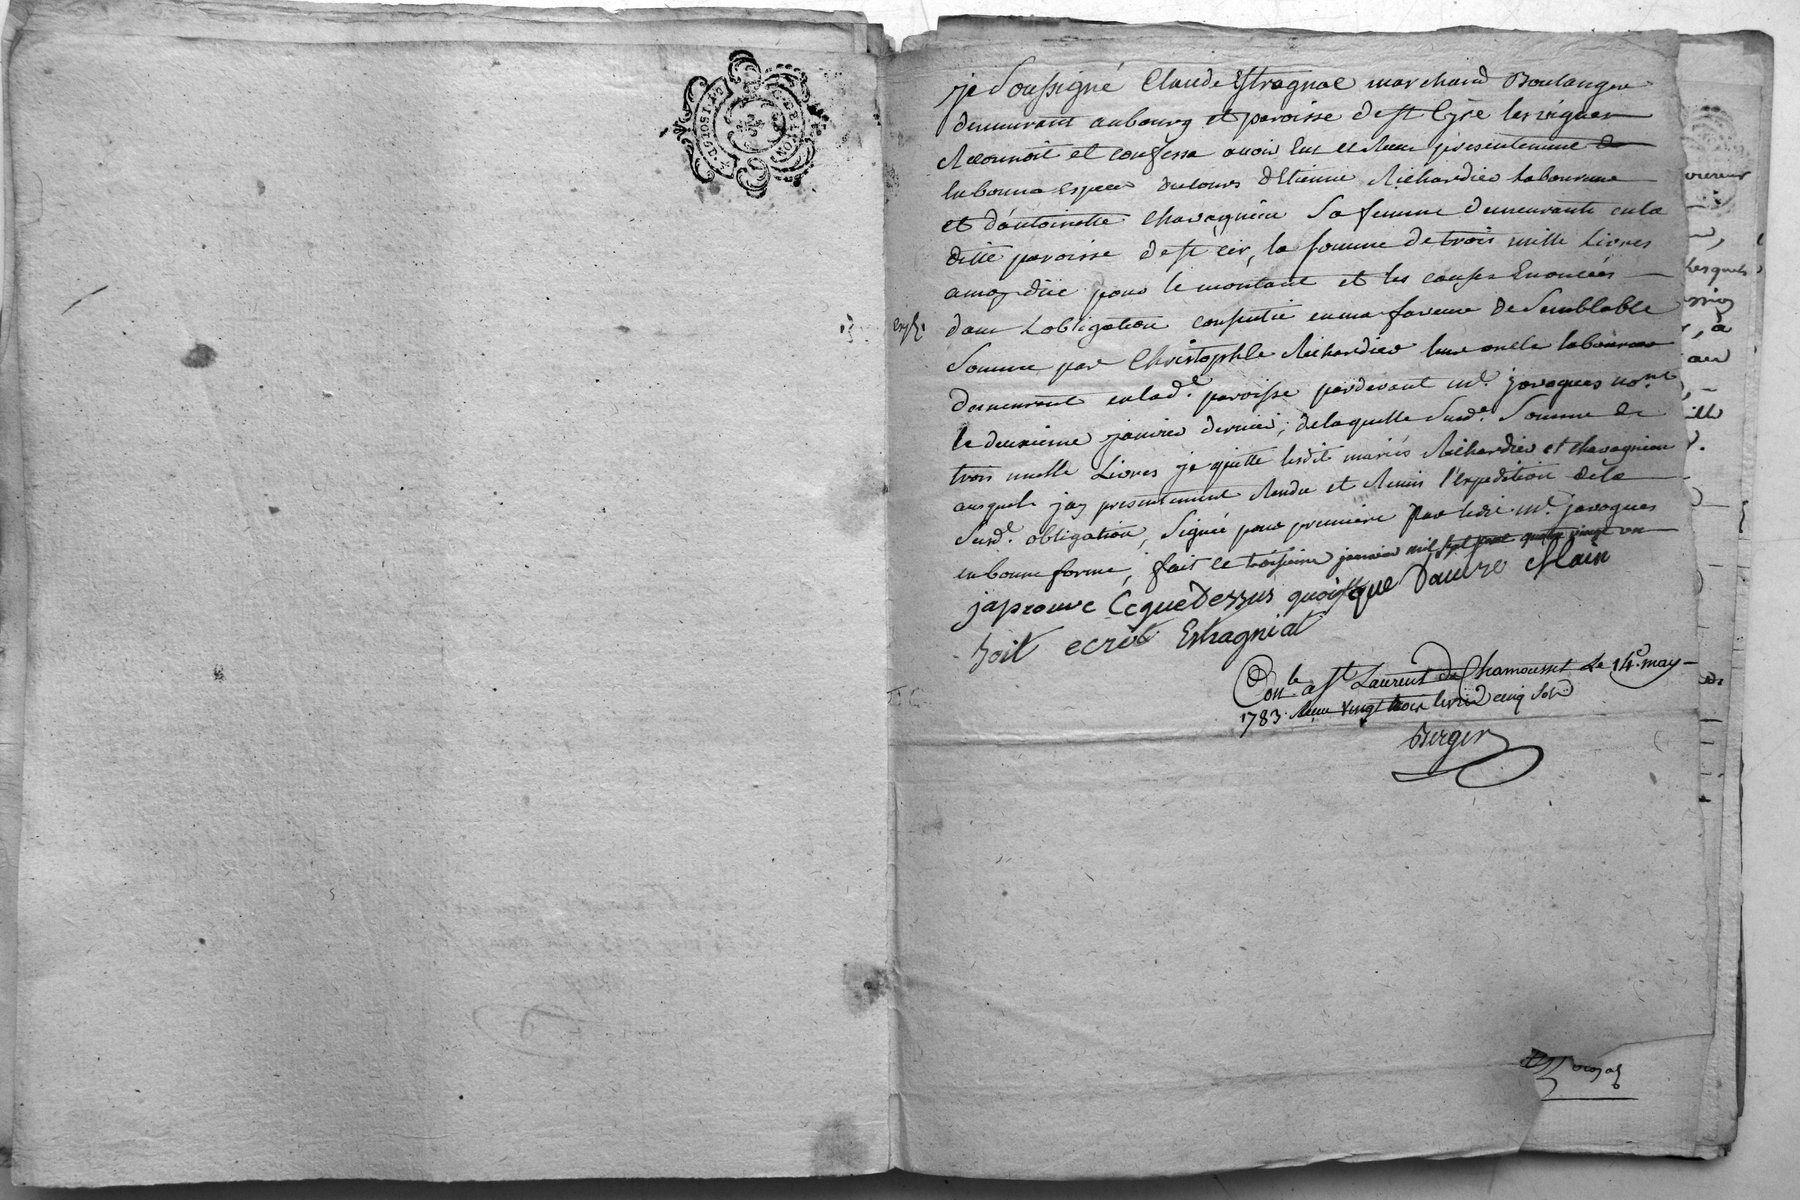 G. DE LYON
2. S. 10 DEN.
je Soussigné Claude Estragnat marchand Boulanger
demeurant aubourg et paroisse de st Cyre les vignes
Reconnoit et confesse avoir Eut et Receu presentement
en bonne espece ducours d'Etienne Richardier laboureur
et d'antoinette chavagnieu Sa femme demeurants en la
ditte paroisse de st cir, la somme de trois mille Livres
a moy due pour le montant et les causes Enoncées
dans L'obligation consentie en ma faveur de Semblable
Somme par Christophle Richardier leur oncle laboureur
demeurant en lad.e paroisse pardevant m.e javogues no.re
le deuxieme janvier dernier; de laquelle Susd.e Somme de
trois mille Livres je quitte lesdit mariés Richardier et chavagnieu
ausquels jay presentement Rendu et Remis l'expedition de la
Susd.e obligation, Signée pour premiere par ledit m.e javogues
en bonne forme, fait ce troisieme janvier mil sept cent quatre vingt un
japrouve Ce que Dessus quoique D'autre Main
Soit ecrit Estragniat
Con.le a st Laurent de Chamousset Le 14.e may
1783. Receu vingt trois livres cinq sols
Berger